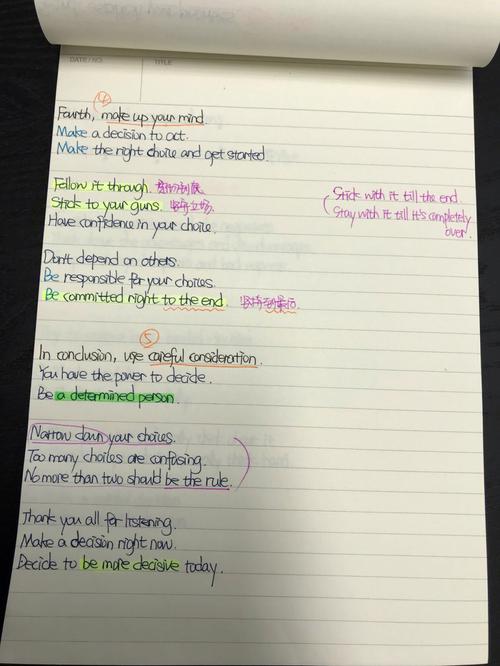 DATE / NO.
TITLE
4
Fourth, make up your mind.
Make a decision to act.
Make the right choice and get started.
Follow it through. 坚持到底
Stick to your guns. 坚持立场.
Have confidence in your choice.
Stick with it till the end.
Stay with it till It's completely
over.
Don't depend on others.
Be responsible for your choices.
Be committed right to the end. 坚持到最后.
5
In conclusion, use careful consideration.
You have the power to decide.
Be a determined person.
Narrow down your choices.
Too many choices are confusing.
No more than two should be the rule.
Thank you all for listening.
Make a decision right now.
Decide to be more decisive today.